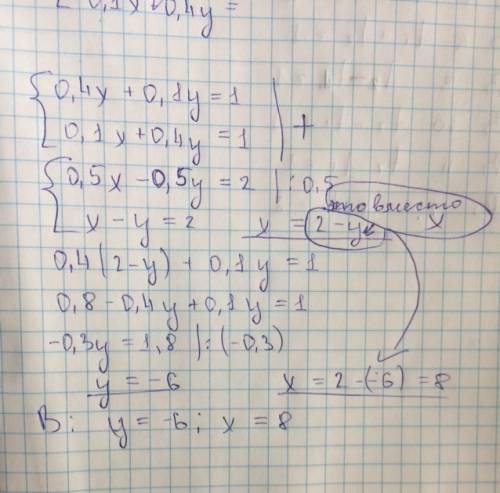 0,1x + 0,4y =
0,4x + 0,1y = 1
0,1x + 0,4y = 1 | +
0,5x - 0,5y = 2 | : 0,5
x - y = 2 x = 2 - y это вместо x
0,4(2-y) + 0,1y = 1
0,8 - 0,4y + 0,1y = 1
-0,3y = 1,8 | : (-0,3)
y = -6 x = 2 - (-6) = 8
В: y = -6; x = 8